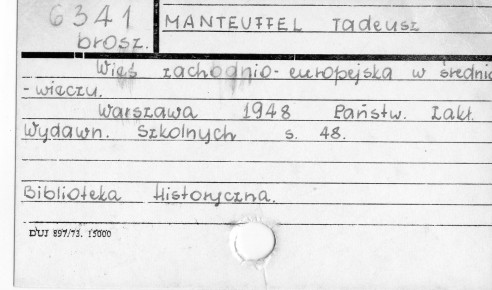 6341
brosz.
MANTEUFFEL Tadeusz
Wieś zachodnio-europejska w średnio
-wieczu.
Warszawa 1948 Państw. Zakł.
Wydawn. Szkolnych s. 48.
Biblioteka Historyczna.
DUJ 897/73. 15000